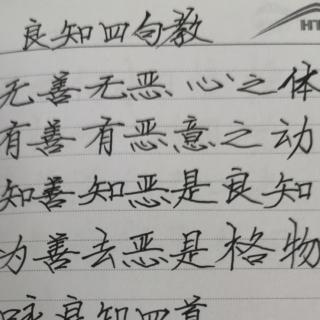 良知四句教
HT
无善无恶心之体
有善有恶意之动
知善知恶是良知
为善去恶是格物
咏良知四首